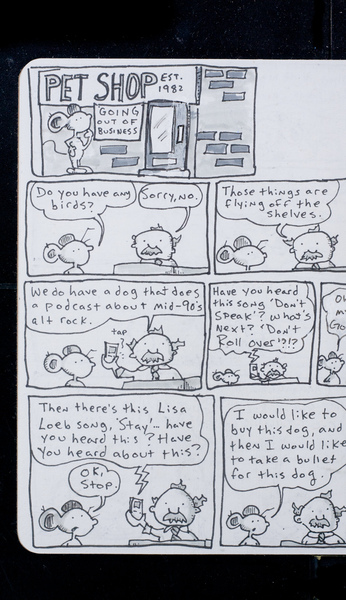 PET SHOP EST.
1982
GOING
OUT OF
BUSINESS
Do you have any
birds?
Sorry, no.
Those things are
flying off the
shelves.
We do have a dog that does
a podcast about mid-90's
alt rock.
tap
Have you heard
this song 'Don't
Speak'? What's
Next? 'Don't
Roll over'?!?
Then there's this Lisa
Loeb song, 'Stay'... have
you heard this? Have
you heard about this?
OK,
Stop.
I would like to
buy this dog, and
then I would like
to take a bullet
for this dog.